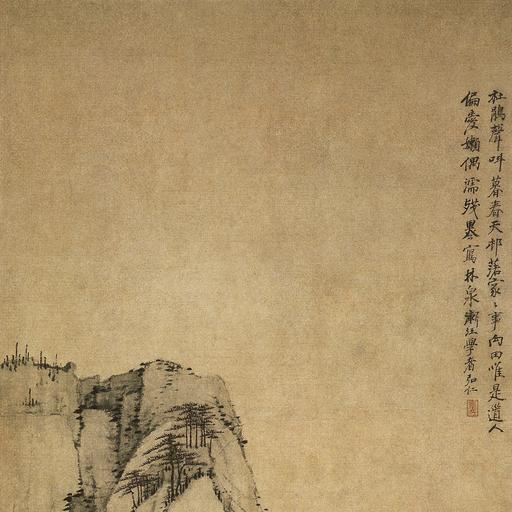 杜鵑聲叫暮春天邨落家〻事向田唯是道人
偏愛嬾偶濡殘墨寫林泉漸江學者弘仁